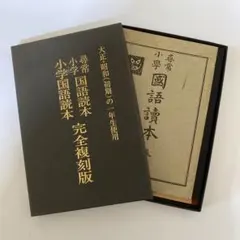 大正・昭和(初期)の一年生使用
尋常小学 国語読本
小学国語読本 完全複刻版
尋常
小學
國語讀本